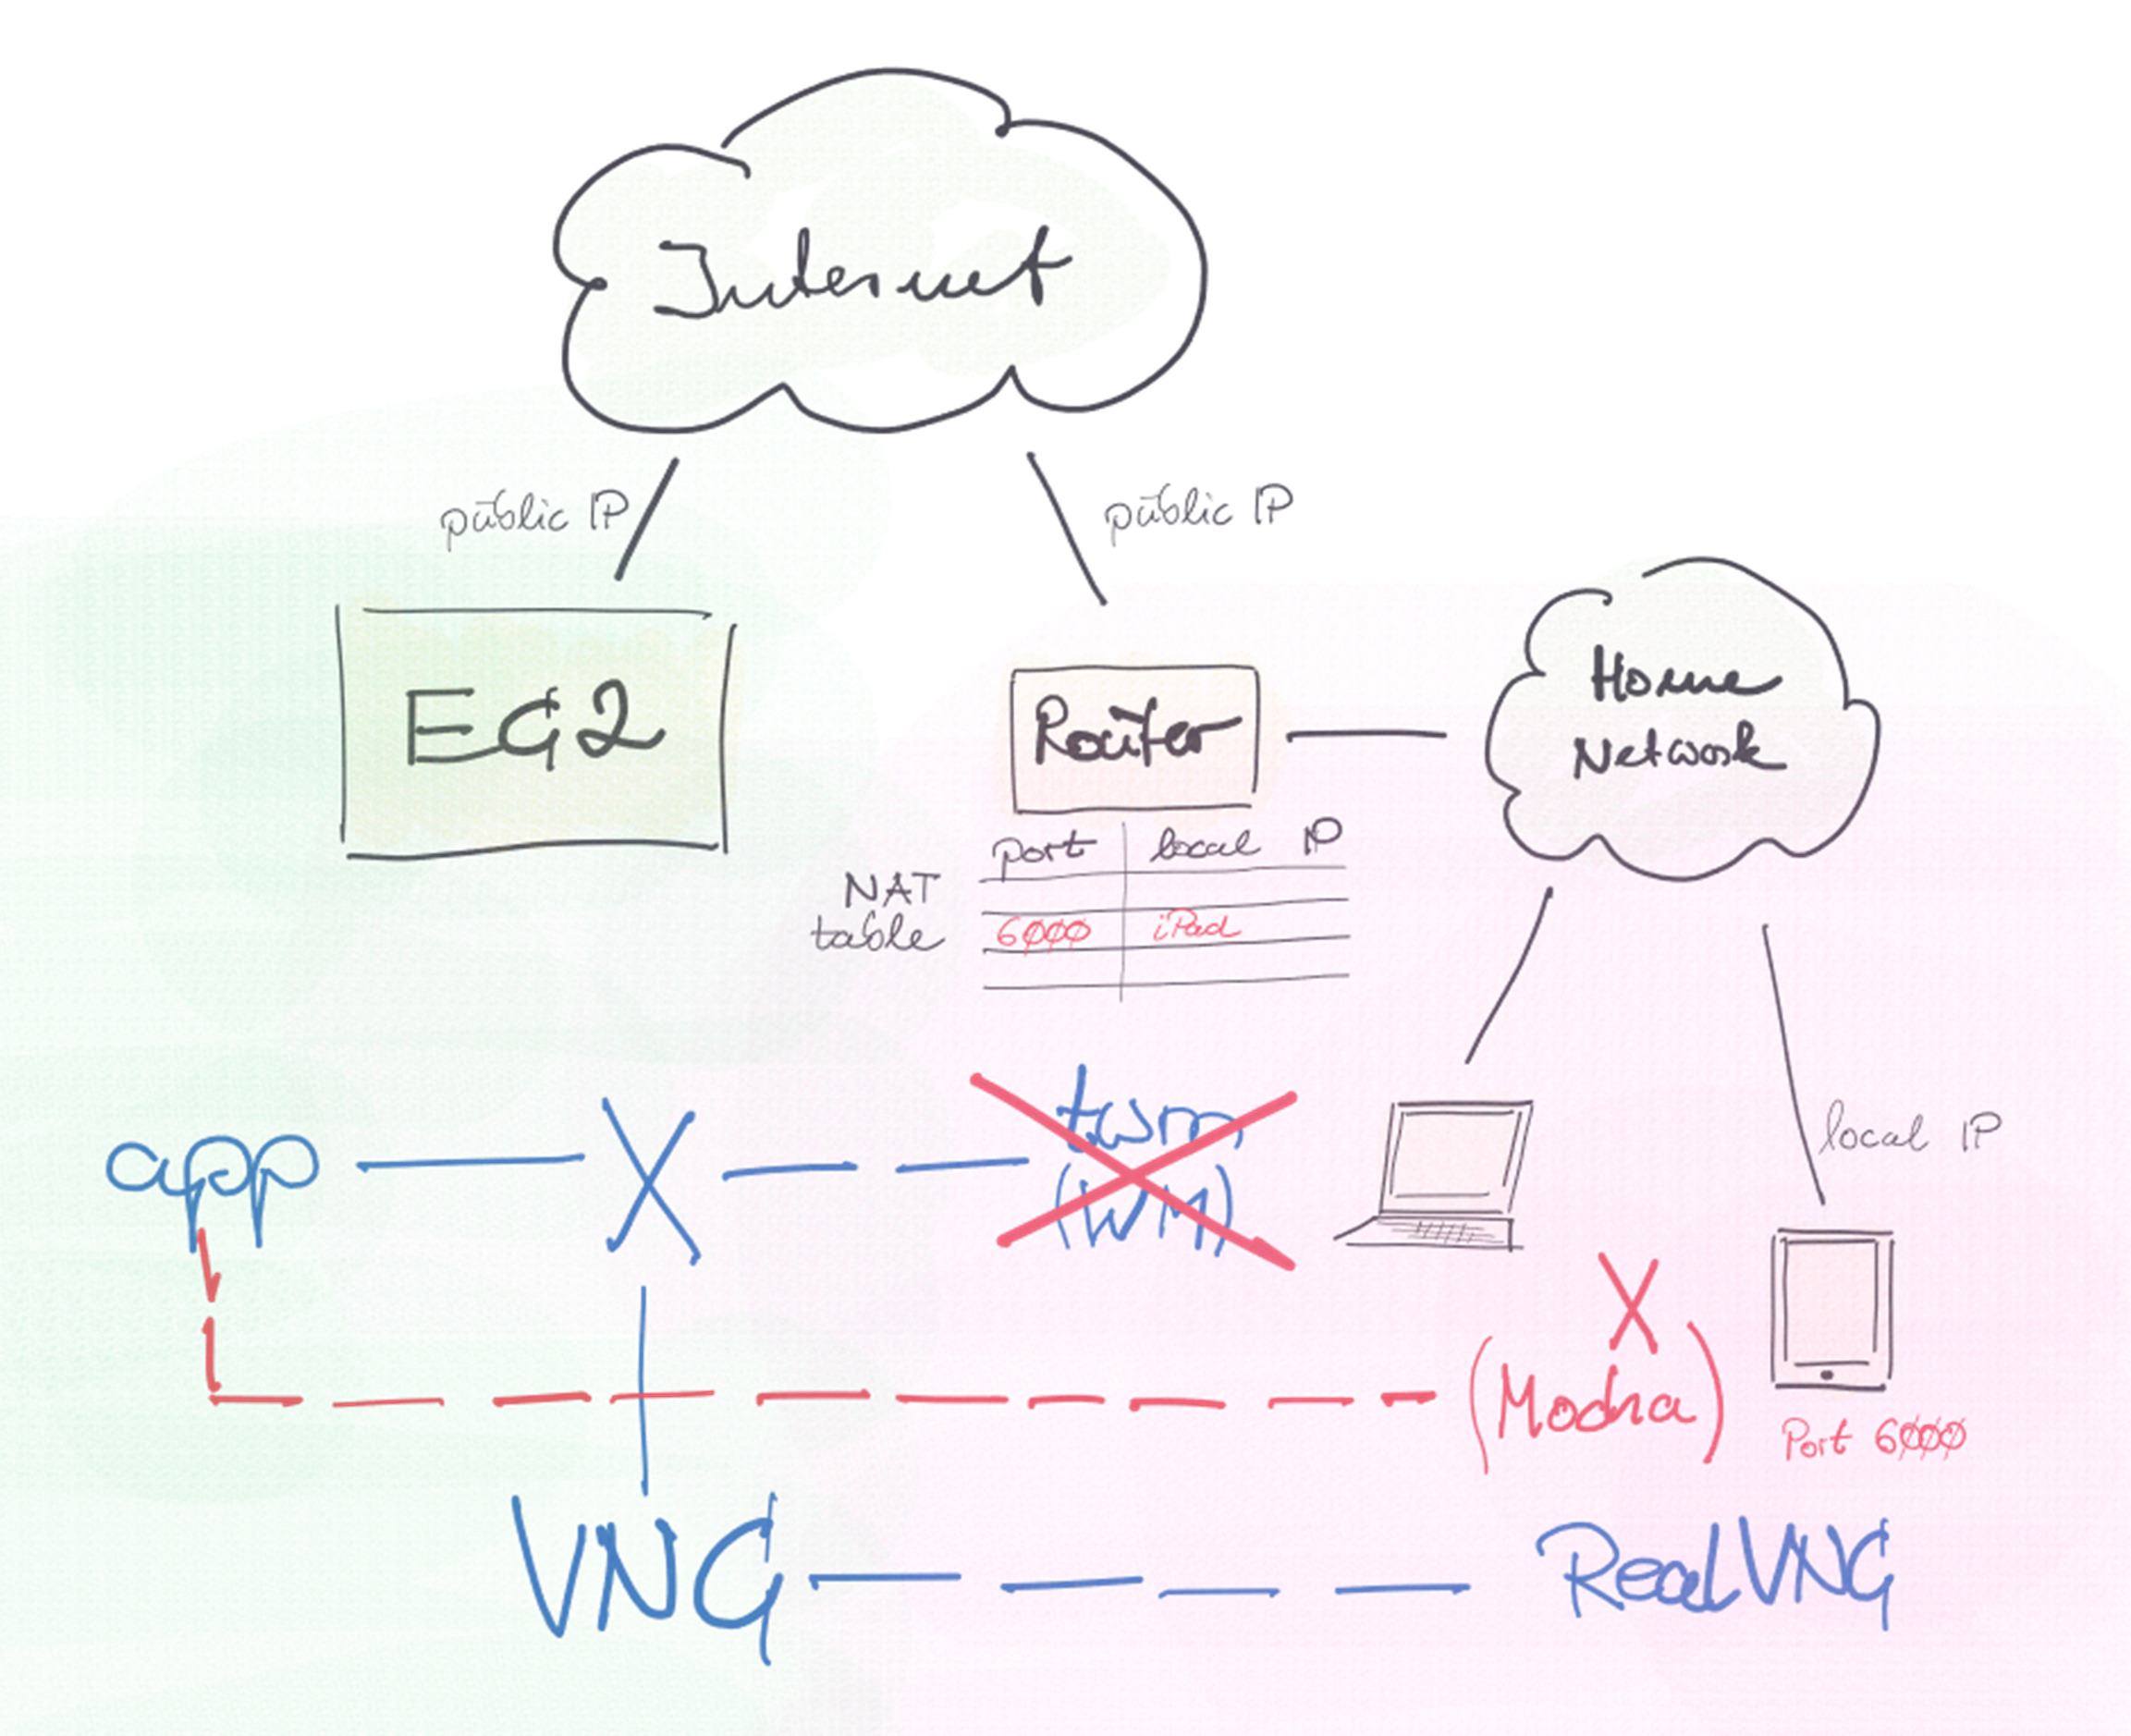 Internet
public IP
public IP
EC2
Router
Home
Network
port local IP
NAT
table
6000 iPad
app X twm
(WM)
local IP
X
(Mocha)
Port 6000
VNC RealVNC